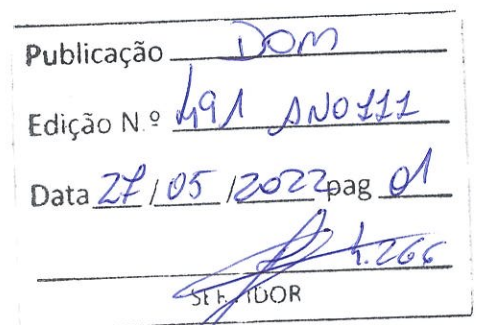 Publicação DOM
Edição N.º 491 ANO III
Data 27/05/2022 pag 01
1.266
SERVIDOR